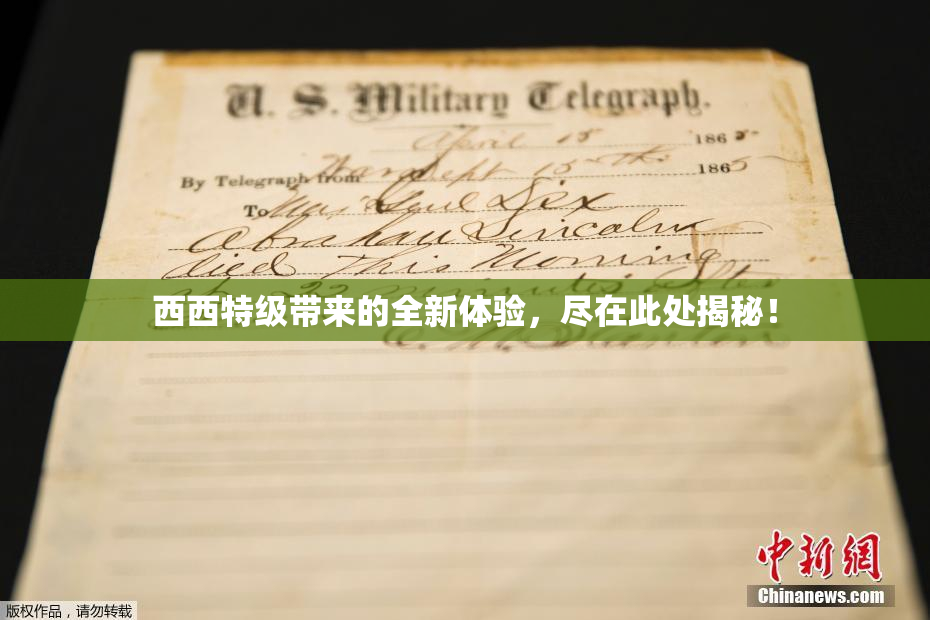 U. S. Military Telegraph.
April 15 1865
By Telegraph from War Dept 15th 1865
To Maj Genl Dix
Abraham Lincoln
died This Morning
at 22 minutes after
西西特级带来的全新体验，尽在此处揭秘！
E. M. Stanton
中新网
Chinanews.com
版权作品，请勿转载